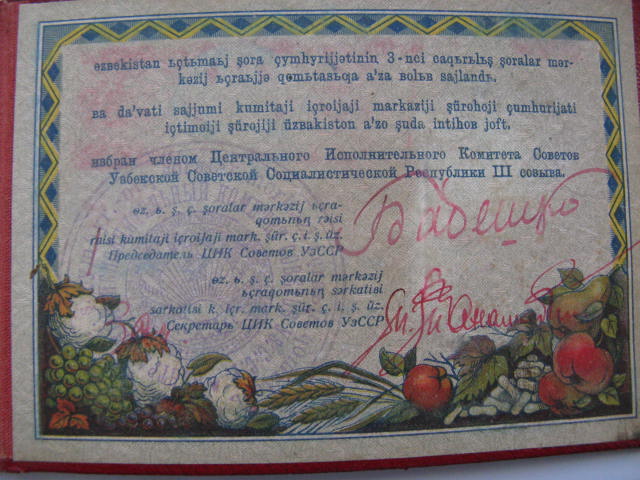 өzbekistan ьçtьmaьj şora çymhyrijjətinin 3-nci caqьrьlьş şoralar mər-
kəzij ьçraьjjə qomьtasьqa a'za bolьв sajlandь.
va da'vati sajjumi kumitaji içroijaji markaziji şūrohoji çumhurijati
içtimoiji şūrojiji ūzbakiston a'zo şuda intihoв joft.
избран членом Центрального Исполнительного Комитета Советов
Узбекской Советской Социалистической Республики III созыва.
өz. ь. ş. ç. şoralar mərkəzij ьçra-
qomьnьŋ rəisi
raisi kumitaji içroijaji mark. şūr. ç. i. ş. ūz.
Председатель ЦИК Советов УзССР
өz. ь. ş. ç. şoralar mərkəzij
ьçraqomьnьŋ sərkatiвi
sarkatiвi k. içr. mark. şūr. ç. i. ş. ūz.
Секретарь ЦИК Советов УзССР